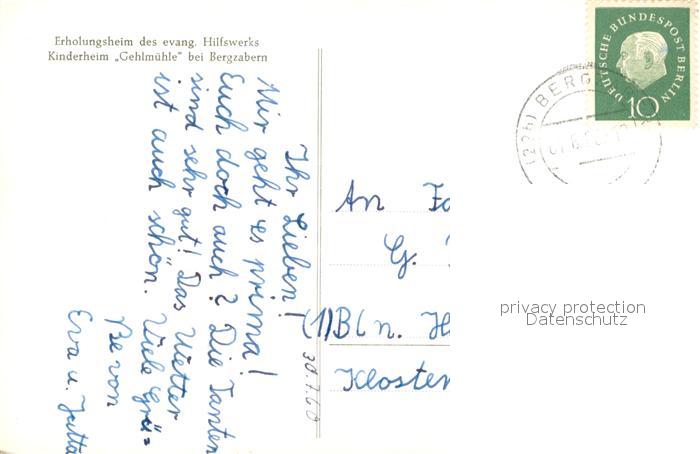 Erholungsheim des evang. Hilfswerks
Kinderheim „Gehlmühle" bei Bergzabern
Ihr Lieben!
Mir geht es prima!
Euch doch auch? Die Tanten
sind sehr gut! Das Wetter
ist auch schön. Viele Grü=
ße von
Eva u. Jutta
30.7.60
An Fa
G.
(1) Bln. H
Kloster
DEUTSCHE BUNDESPOST BERLIN
10
(22b) BERG
privacy protection
Datenschutz